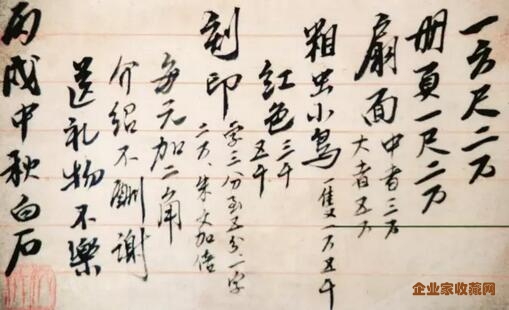 一方尺二万
册頁一尺二万
扇面中者三万
大者五万
粗虫小鳥一隻一万五千
紅色三千
五千
刻印字三分至五分一字
二万朱文加倍
每元加二角
介绍不酬谢
送礼物不樂
丙戌中秋白石
企业家收藏网